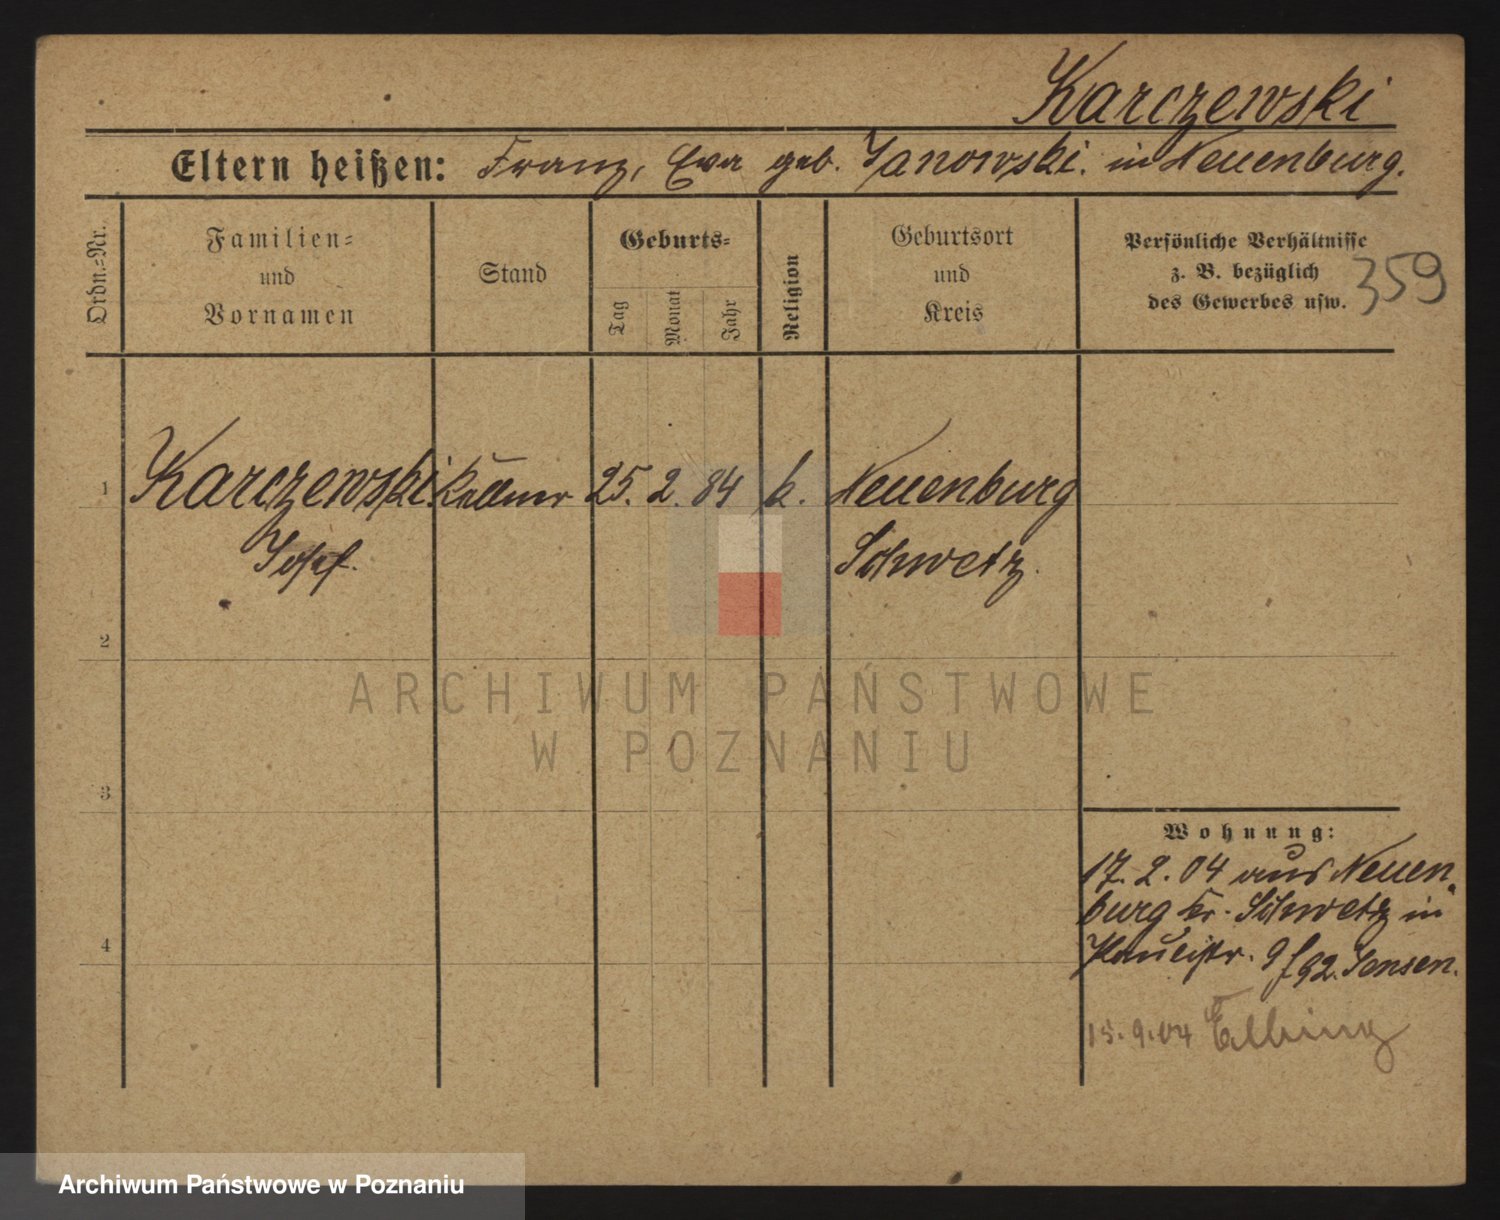 Karczewski
Eltern heißen: Franz, Eva geb. Janowski. in Neuenburg.
Ordn.-Nr.
Familien-
und
Vornamen
Stand
Geburts-
Tag
Monat
Jahr
Religion
Geburtsort
und
Kreis
Persönliche Verhältnisse
z. B. bezüglich
des Gewerbes usw.
359
1 Karczewski Kellner 25. 2. 84 k. Neuenburg
Josef. Schwetz.
2
3
4
Wohnung:
17. 2. 04 aus Neuen-
burg Kr. Schwetz in
Paulistr. 9 Jensen.
15. 9. 04 Elbing
ARCHIWUM PAŃSTWOWE
W POZNANIU
Archiwum Państwowe w Poznaniu